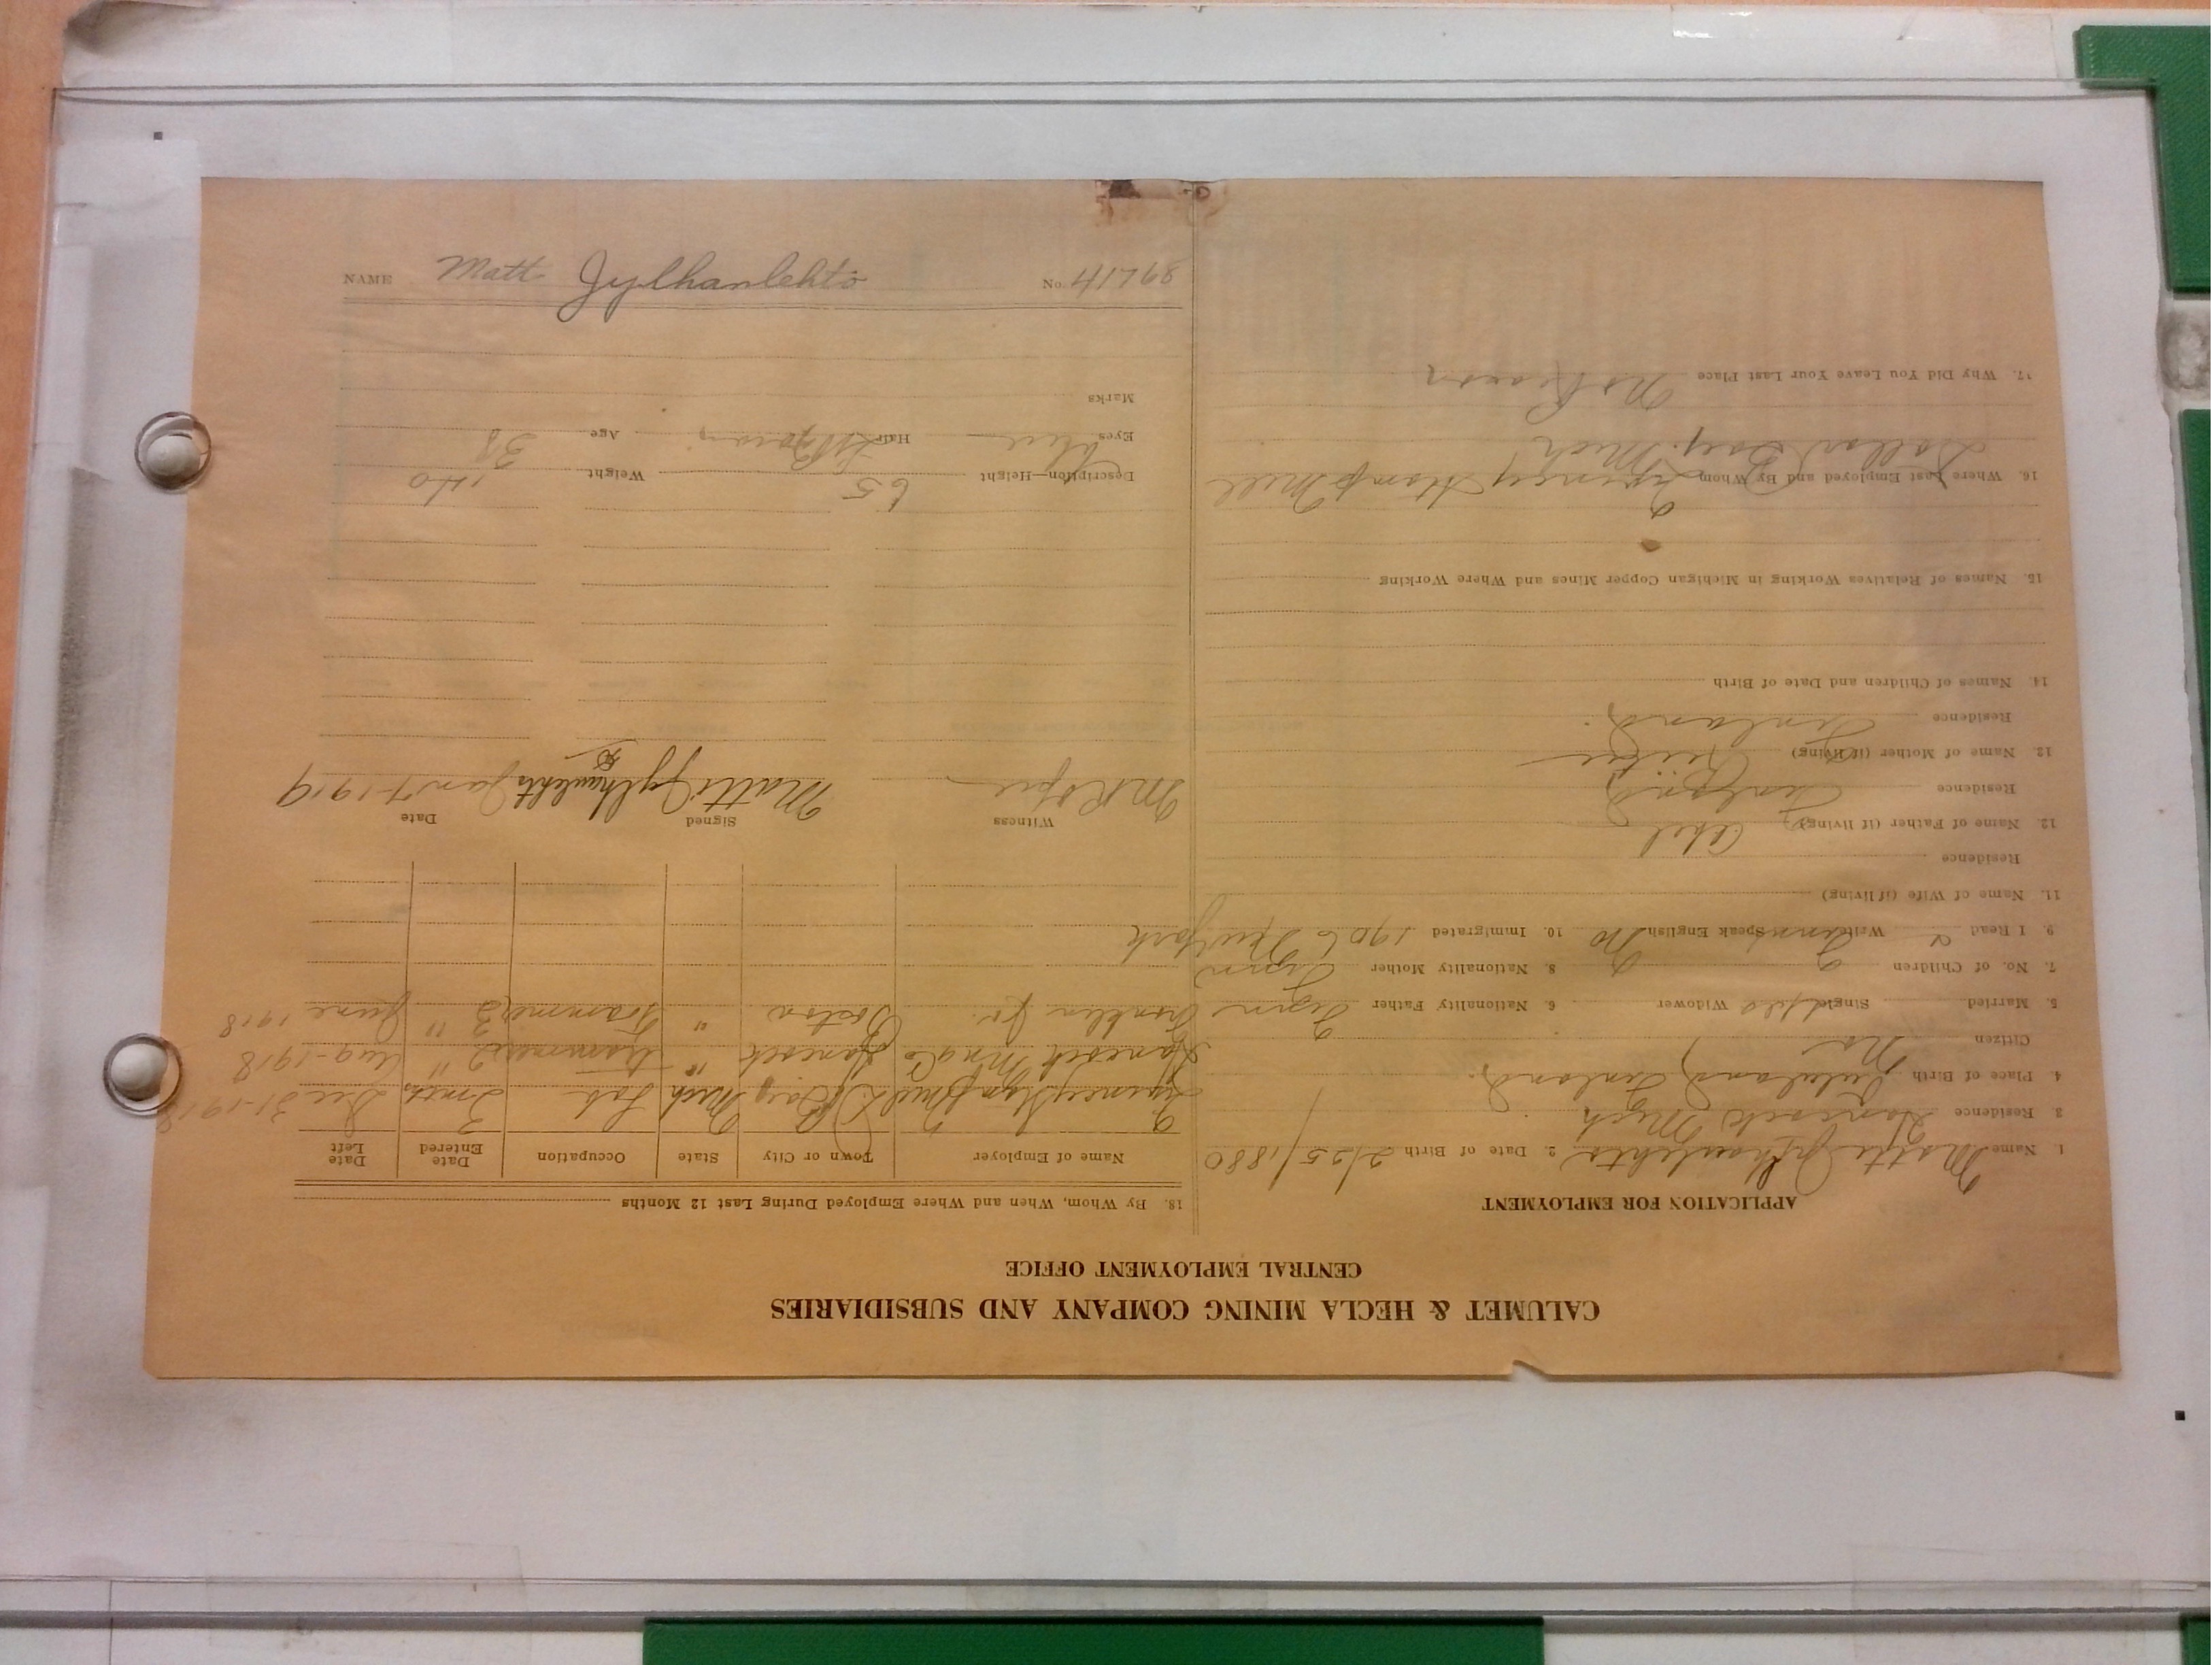 CALUMET & HECLA MINING COMPANY AND SUBSIDIARIES
CENTRAL EMPLOYMENT OFFICE
APPLICATION FOR EMPLOYMENT
1. Name Jylhanlehto 2. Date of Birth 2/25/1880
3. Residence Hancock Mich
4. Place of Birth Finland
Citizen No
5. Married Single Widower 6. Nationality Father Finn
7. No. of Children 8. Nationality Mother Finn
9. I Read Write Finnish Speak English No 10. Immigrated 1906 New York
11. Name of Wife (if living)
Residence
12. Name of Father (if living)
Residence Finland
13. Name of Mother (if living)
Residence Finland
14. Names of Children and Date of Birth
15. Names of Relatives Working in Michigan Copper Mines and Where Working
16. Where Last Employed and By Whom Quincy Stamp Mill
Dollar Bay. Mich
17. Why Did You Leave Your Last Place No Reason
18. By Whom, When and Where Employed During Last 12 Months
Name of Employer Town or City State Occupation Date Entered Date Left
Quincy Stamp Mill D. Bay Mich Lab 3 mths Dec 31-1918
Hancock Hancock " trammer 2 " Aug-1918
Franklin Jr. Boston " Trammer 3 " June 1918
Witness Signed Date
Matti Jylhanlehto Jan 7-1919
Description—Height 65 Weight 140
Eyes blue Hair Age 38
Marks
NAME Matt Jylhanlehto No. 41768